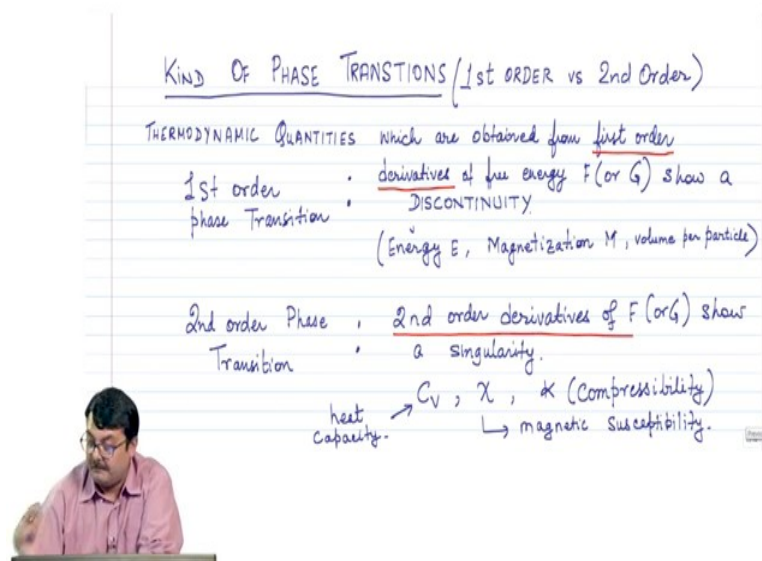 KIND OF PHASE TRANSTIONS (1st ORDER vs 2nd Order)
THERMODYNAMIC QUANTITIES which are obtained from first order
1st order : derivatives of free energy F (or G) show a
phase Transition DISCONTINUITY.
(Energy E, Magnetization M, volume per particle)
2nd order Phase : 2nd order derivatives of F (or G) show
Transition a singularity.
heat capacity. → Cv, χ, κ (Compressibility)
↳ magnetic susceptibility.